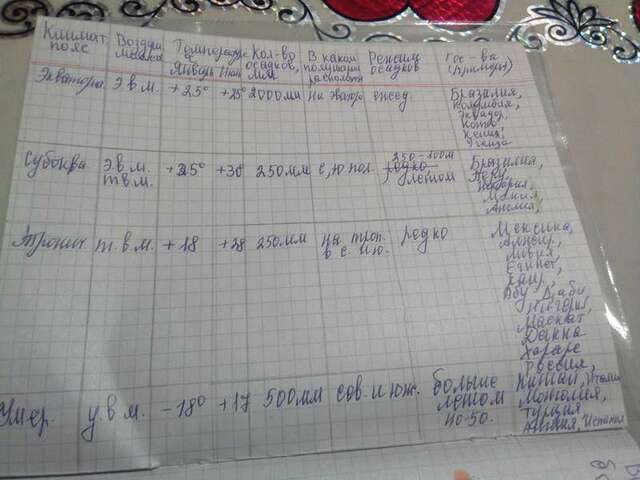 Климат пояс Воздуш массы Температура Январь Июл Кол-во осадков, мм В каком полушарии располож Режим осадков Гос-ва (примеры)
Экватори Э.в.м. +25° +25° 2000мм на экватор
Бразилия,
Колумбия,
Кения,
Уганда
Субэква э.в.м. т.в.м. +25° +30 250мм с, ю пол. 250-100м летом
Бразилия,
Перу,
Тропич т.в.м. +18 +28 250мм на троп. в с. ю. редко
Мексика,
Алжир,
Ливия,
Египет,
Каир,
Абу Даби
Нигерия,
Маскат
Хараре
Россия,
Умер. у.в.м. -18° +17 500мм сев. и юж. больше летом 40-50.
Китай, Италия
Монголия,
Турция
Англия, Испания